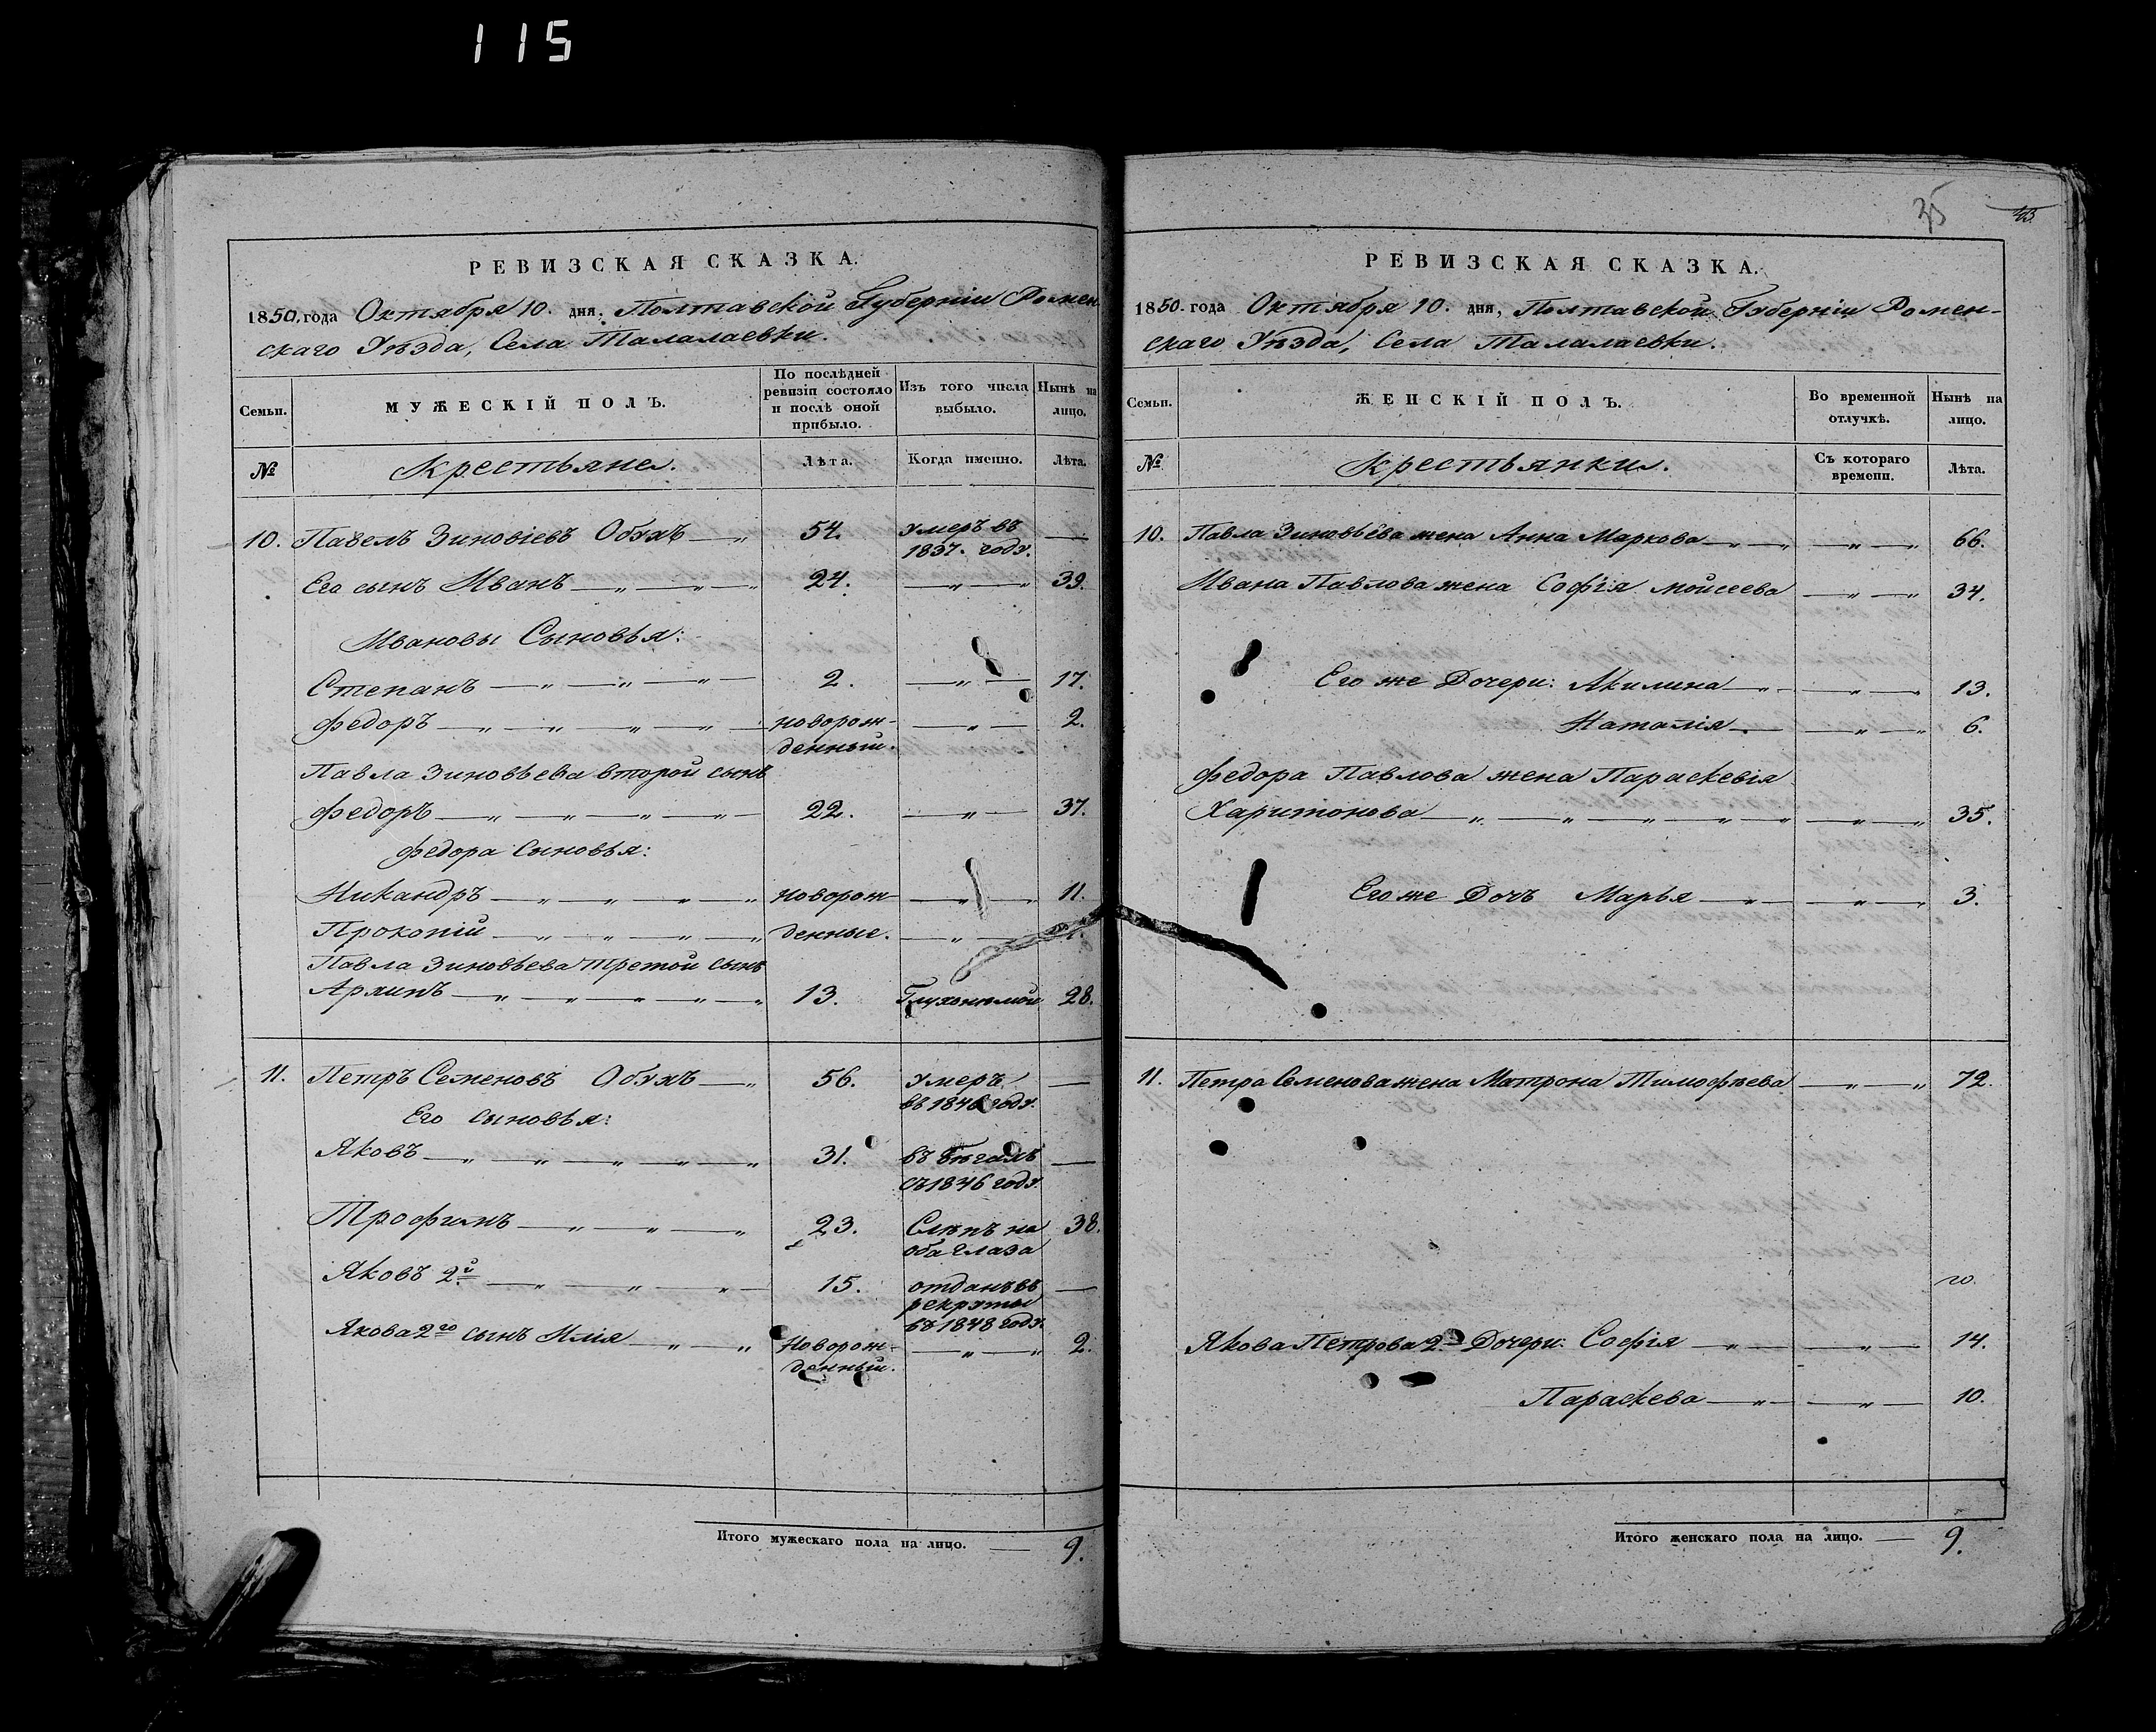 115
РЕВИЗСКАЯ СКАЗКА.
1850. года Октября 10. дня, Полтавской Губерніи Ромен-
скаго Уѣзда, Села Талалаевки.
Семьи.
МУЖЕСКІЙ ПОЛЪ.
По послѣдней ревизіи состояло и послѣ оной прибыло.
Изъ того числа выбыло.
Нынѣ на лицо.
№
Крестьяне.
Лѣта.
Когда именно.
Лѣта.
10. Павелъ Зиновіевъ Обухъ — „ 54. Умеръ въ 1837. году. —
Его сынъ Иванъ — „ — „ — „ 24. — „ — „ 39.
Ивановы Сыновья:
Степанъ — „ — „ — „ — 2. — „ — 17.
Федоръ — „ — „ — „ — „ — новорож- — „ — 2.
денный.
Павла Зиновьева второй сынъ
Федоръ — „ — „ — „ — „ — 22. — „ — 37.
Федора Сыновья:
Никандръ — „ — „ — „ — „ новорож- — „ — „ 11.
Прокопій — „ — „ — „ — „ денные. — „ —
Павла Зиновьева третой сынъ
Архипъ — „ — „ — „ — „ — „ 13. Глухонѣмой 28.
11. Петръ Семеновъ Обухъ — „ 56. Умеръ —
въ 1846 году.
Его сыновья:
Яковъ — „ — „ — „ — „ — „ 31. въ бѣгахъ —
съ 1846 году.
Трофимъ — „ — „ — „ 23. Слѣпъ на 38.
оба глаза
Яковъ 2й — „ — „ — „ — 15. отданъ въ —
рекруты
въ 1848 году.
Якова 2го сынъ Илія — „ — „ Новорож- — „ — „ 2.
денный.
Итого мужескаго пола на лицо. — 9.
35
РЕВИЗСКАЯ СКАЗКА.
1850. года Октября 10. дня, Полтавской Губерніи Ромен-
скаго Уѣзда, Села Талалаевки.
Семьи.
ЖЕНСКІЙ ПОЛЪ.
Во временной отлучкѣ.
Нынѣ на лицо.
№
Крестьянки.
Съ котораго времени.
Лѣта.
10. Павла Зиновьева жена Анна Маркова — „ — „ — „ — „ 66.
Ивана Павлова жена Софія Мойсеева — „ — „ 34.
Его же Дочери: Акилина — „ — — „ — „ 13.
Наталія. — — „ — „ 6.
Федора Павлова жена Параскевія
Харитонова — „ — „ — „ — „ — „ — „ — „ 35.
Его же Дочь Марья — „ — — „ — „ 3.
11. Петра Семенова жена Матрона Тимофѣева — „ — „ 72.
го.
Якова Петрова 2 Дочери: Софія — „ — — „ — 14.
Параскева — „ — — „ — 10.
Итого женскаго пола на лицо. — 9.